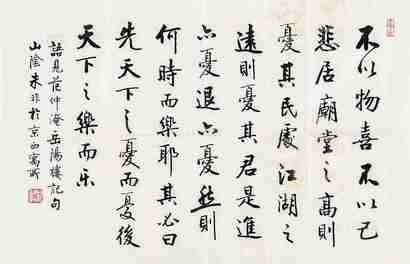 不以物喜不以己
悲居廟堂之高則
憂其民處江湖之
遠則憂其君是進
亦憂退亦憂然則
何時而樂耶其必曰
先天下之憂而憂後
天下之樂而乐
語見范仲淹岳陽樓記句
山陰於京西寓所